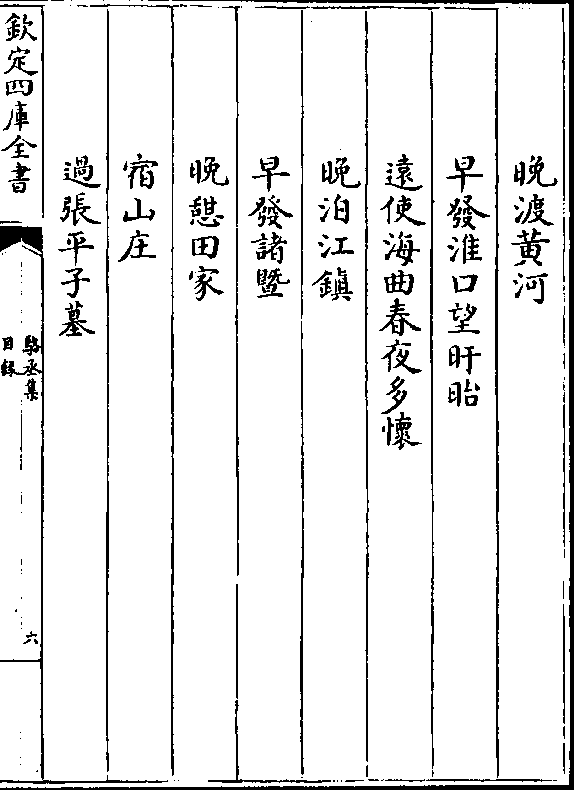 晚渡黄河
早發淮口望盱眙
遠使海曲春夜多懷
晚泊江鎮
早發諸暨
晚憇田家
宿山庄
過張平子墓
欽定四庫全書
駱丞集
目録
六